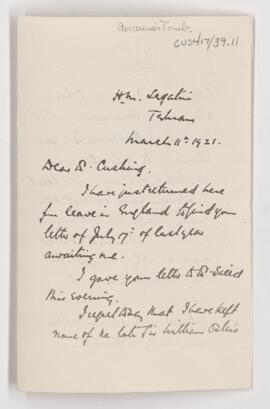 Avicenna's Tomb.
CUS417/39.11
H.M. Legation
Tehran
March 11th 1921.
Dear Dr. Cushing.
I have just returned here
from leave in England to find your
letter of July 17th of last year
awaiting me.
I gave your letter to Dr. Saeed
this evening.
I regret to say that I have kept
none of the late Sir William Osler's